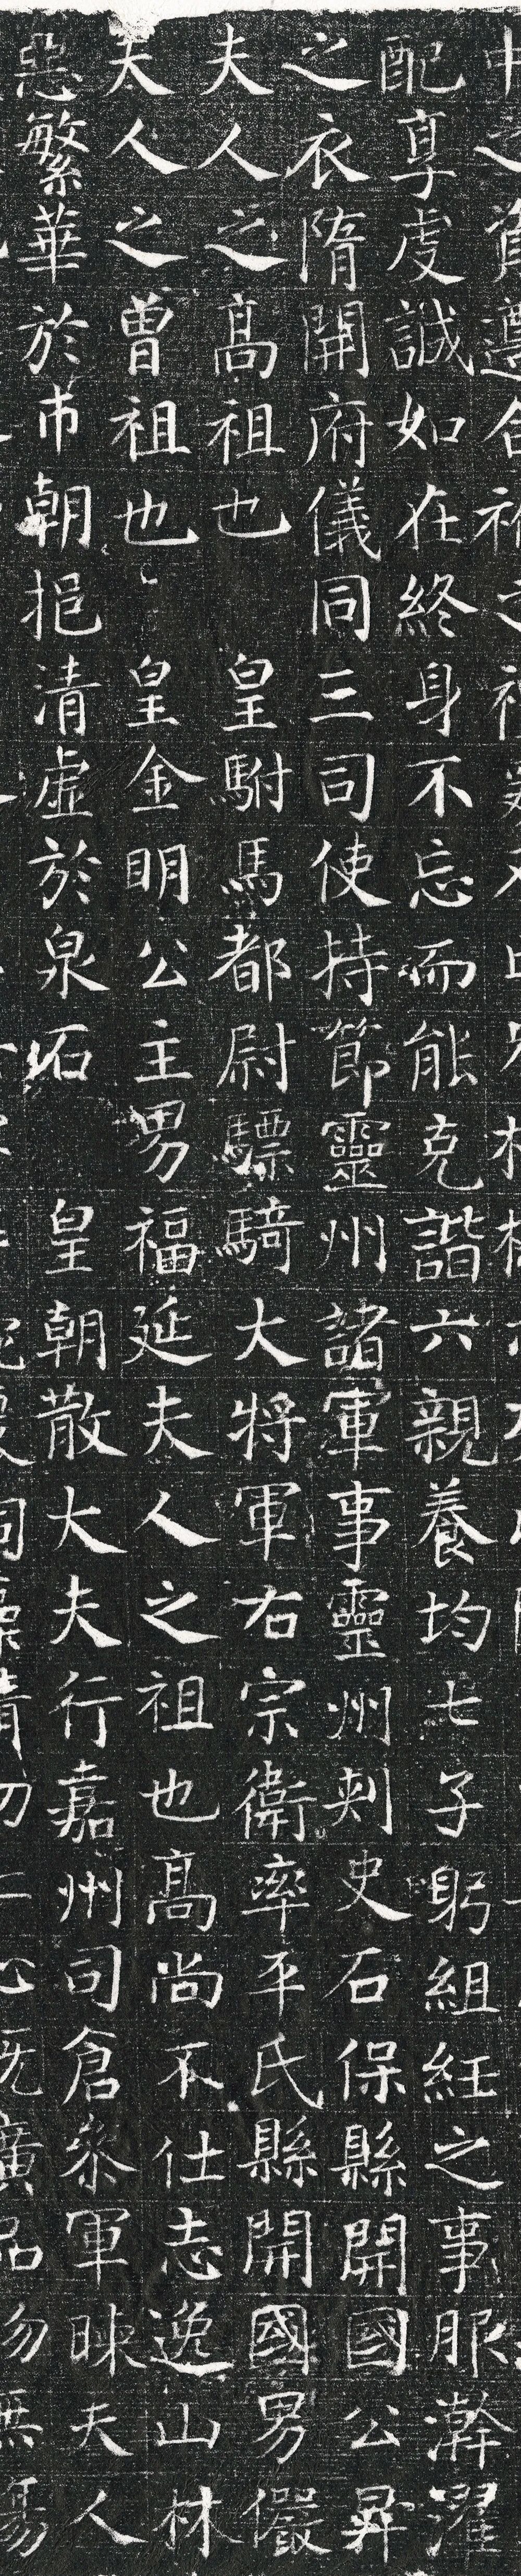 配享虔誠如在終身不忘而能克諧六親養均七子躬組紝之事服澣濯
之衣隋開府儀同三司使持節靈州諸軍事靈州刺史石保縣開國公昇
夫人之高祖也 皇駙馬都尉驃騎大將軍右宗衛率平氏縣開國男儼
夫人之曾祖也 皇金明公主男福延夫人之祖也高尚不仕志逸山林
惡繁華於市朝挹清虛於泉石 皇朝散大夫行嘉州司倉參軍暕夫人